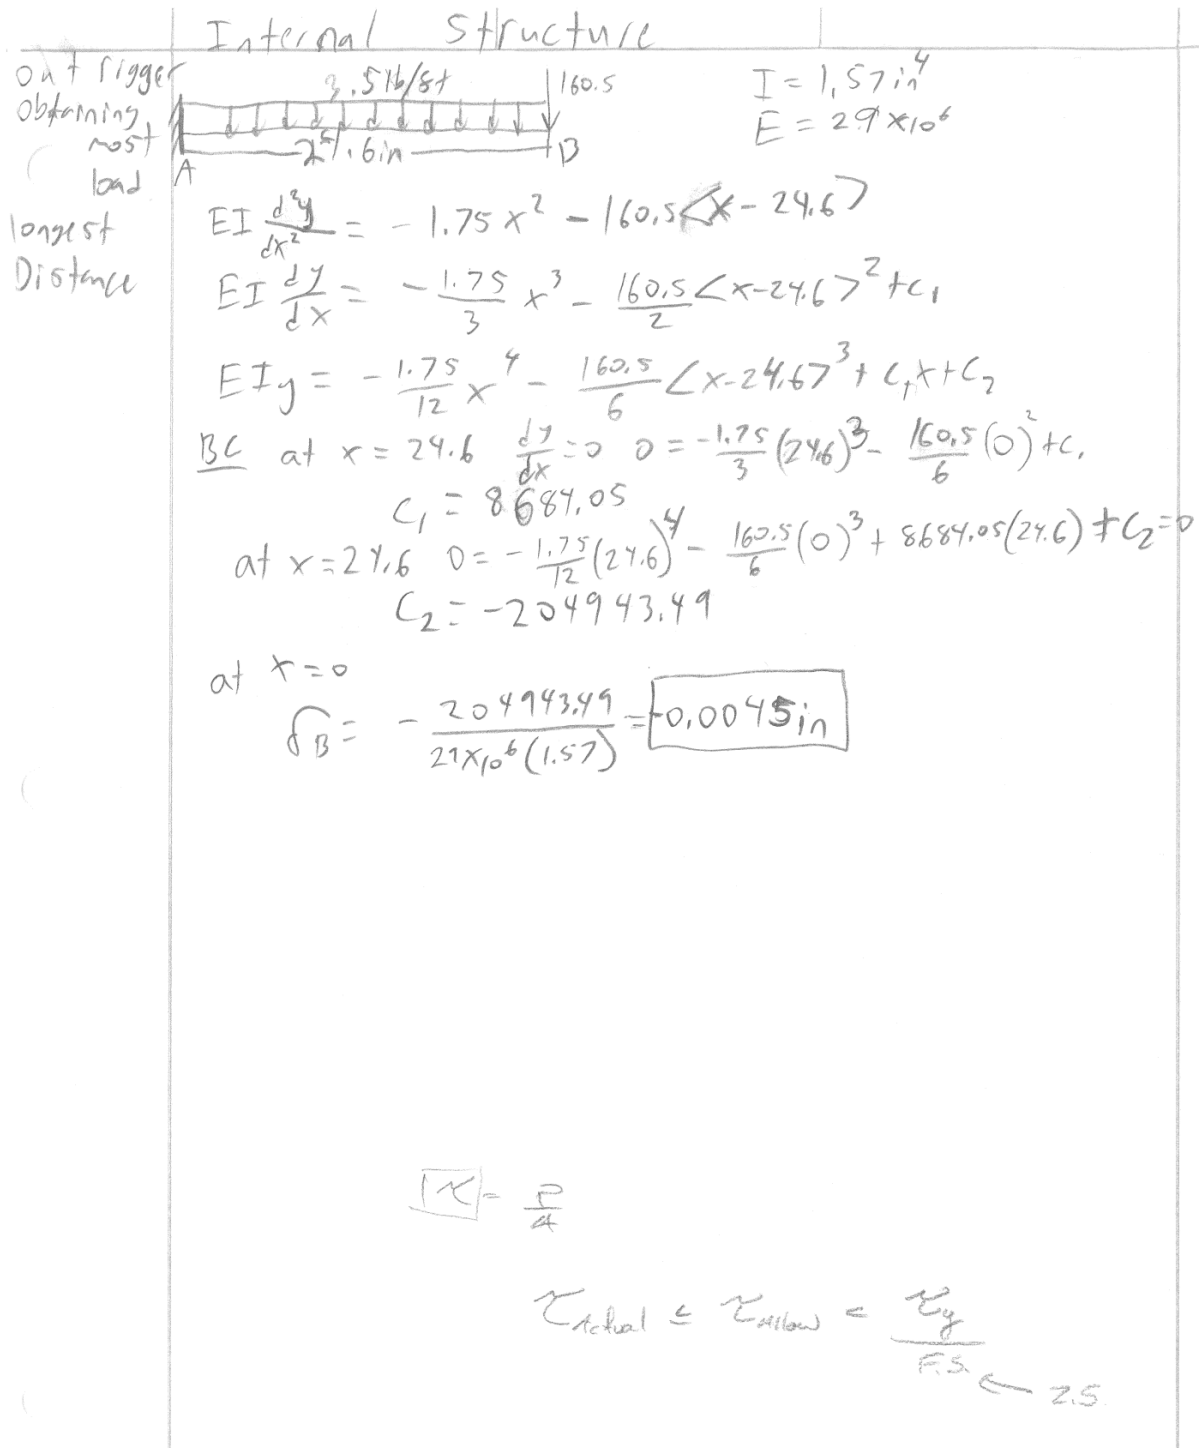 Internal Structure
out rigger
obtaining
most
load
longest
Distance
3.5 lb/ft
160.5
24.6in
A
B
I = 1.57in⁴
E = 29 ×10⁶
EI d²y/dx² = - 1.75 x² - 160.5<x - 24.6>
EI dy/dx = - 1.75/3 x³ - 160.5/2 <x-24.6>² + C₁
EIy = - 1.75/12 x⁴ - 160.5/6 <x-24.6>³ + C₁x + C₂
BC at x = 24.6 dy/dx = 0 0 = -1.75/3 (24.6)³ - 160.5/6 (0)² + C₁
C₁ = 8684.05
at x = 24.6 0 = - 1.75/12 (24.6)⁴ - 160.5/6 (0)³ + 8684.05(24.6) + C₂ = 0
C₂ = -204943.49
at x = 0
δB = - 204943.49/29×10⁶(1.57) = -0.0045in
τ = P/A
τActual ≤ τAllow = τy/F.S. ← 2.5